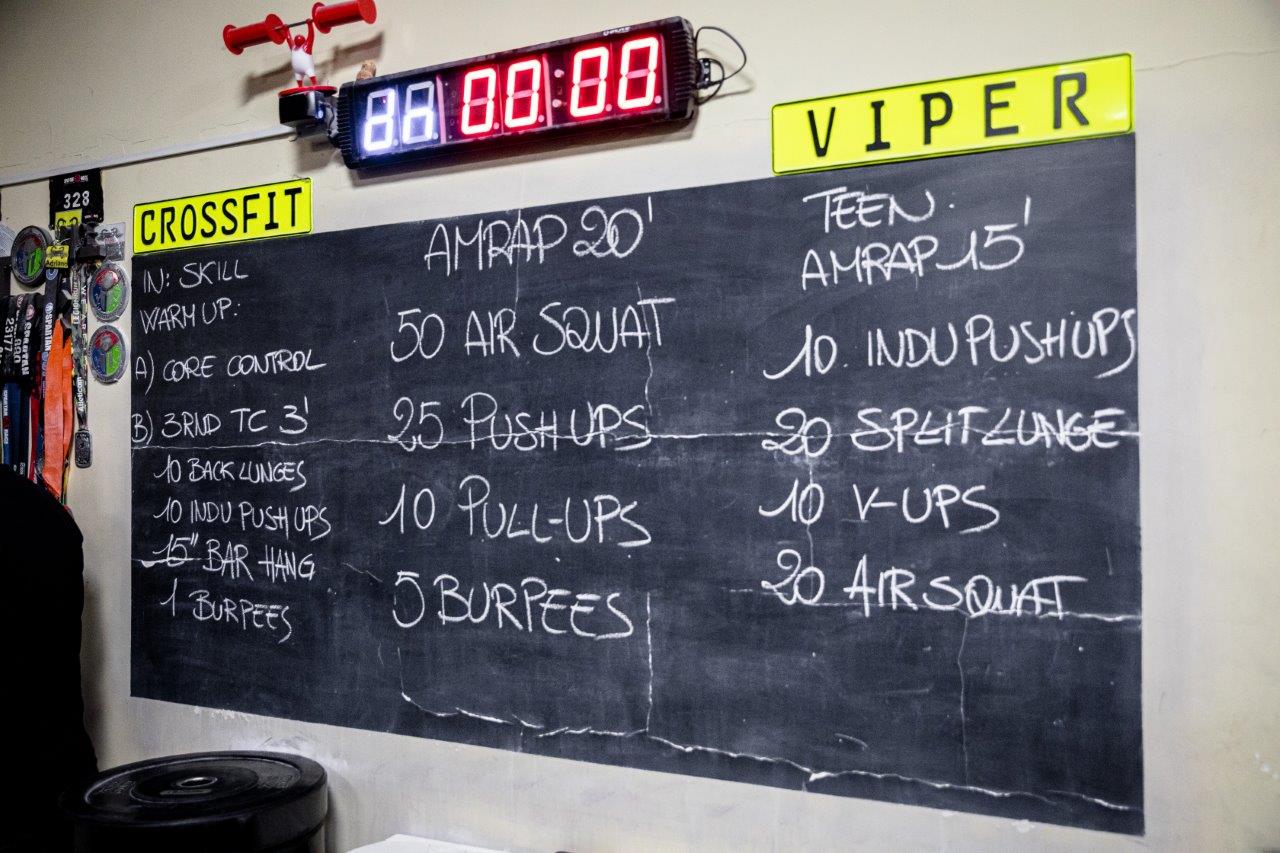 00:00
VIPER
CROSSFIT
328
IN: SKILL
WARM UP:
A) CORE CONTROL
B) 3RND TC 3'
10 BACK LUNGES
10 INDU PUSH UPS
15" BAR HANG
1 BURPEES
AMRAP 20'
50 AIR SQUAT
25 PUSH UPS
10 PULL-UPS
5 BURPEES
TEEN.
AMRAP 15'
10. INDU PUSH UPS
20 SPLIT LUNGE
10 V-UPS
20 AIR SQUAT
SPARTAN
SPARTAN